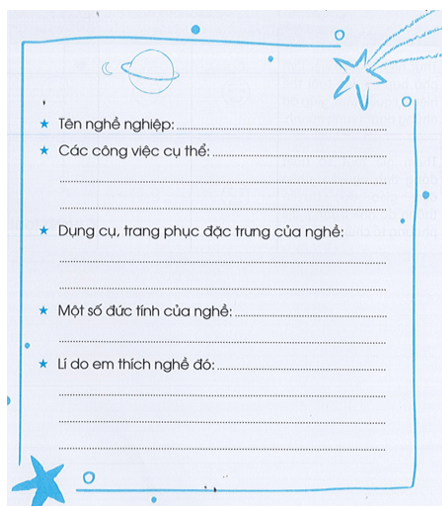 Tên nghề nghiệp:
Các công việc cụ thể:
Dụng cụ, trang phục đặc trưng của nghề:
Một số đức tính của nghề:
Lí do em thích nghề đó: